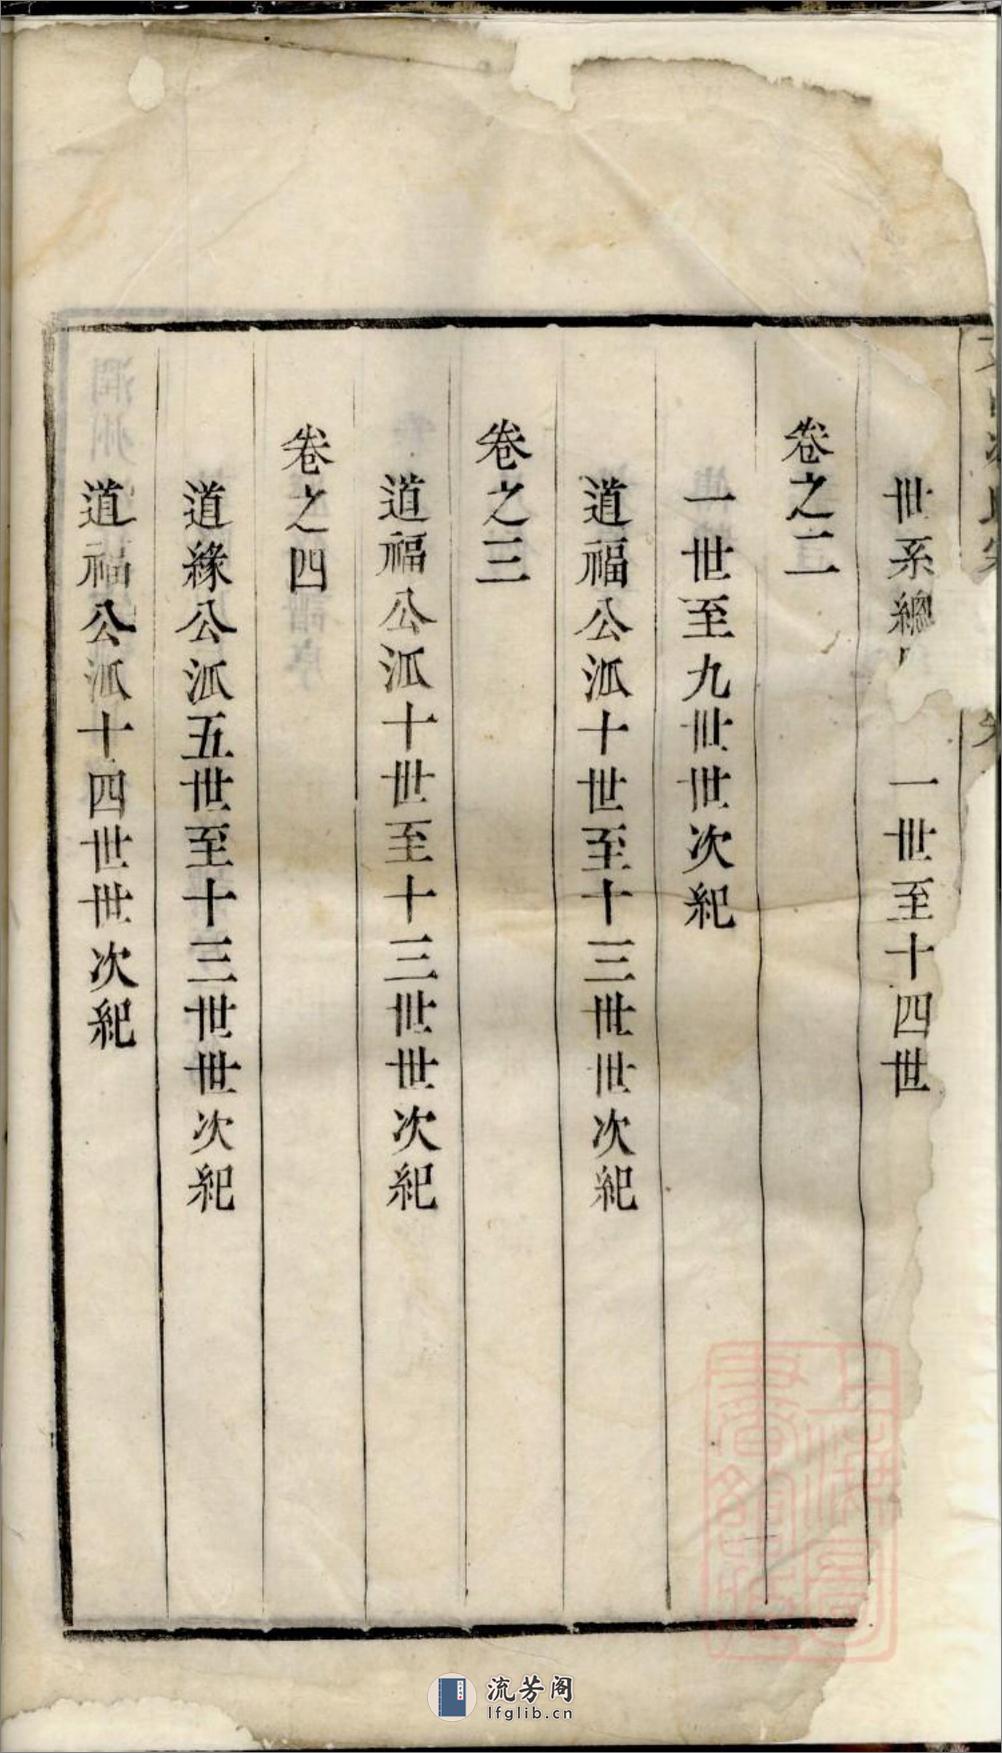 世系總 一世至十四世
卷之二
一世至九世世次紀
道福公派十世至十三世世次紀
卷之三
道福公派十世至十三世世次紀
卷之四
道緣公派五世至十三世世次紀
道福公派十四世世次紀
流芳阁
lfglib.cn